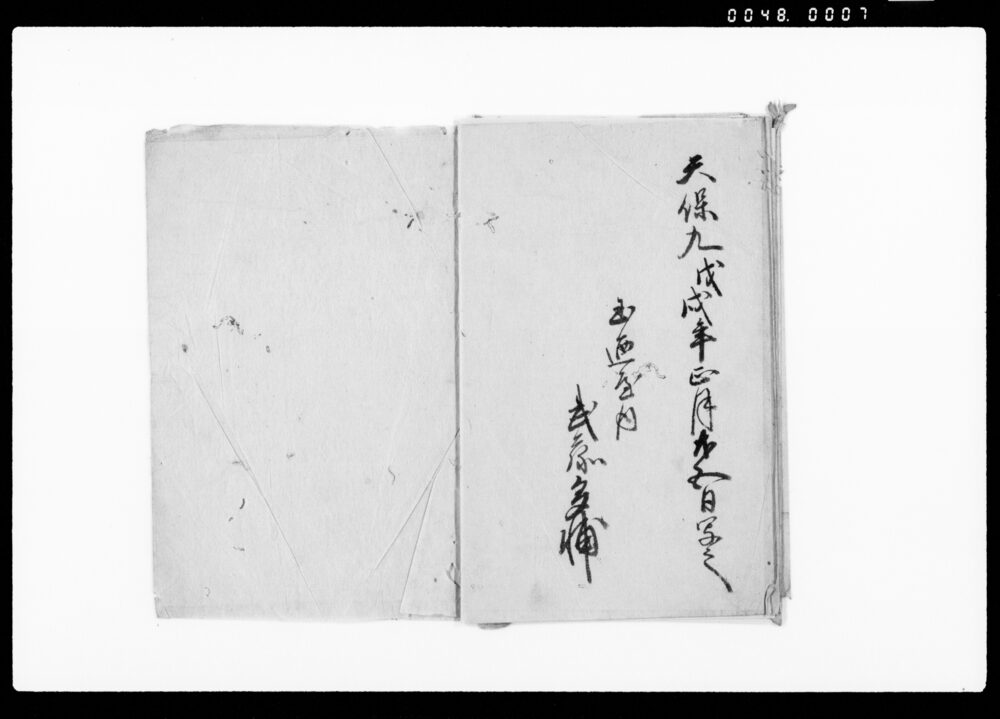 0048. 0007
天保九戊戌年正月廿五日写之
玉造屋内
武藤多補